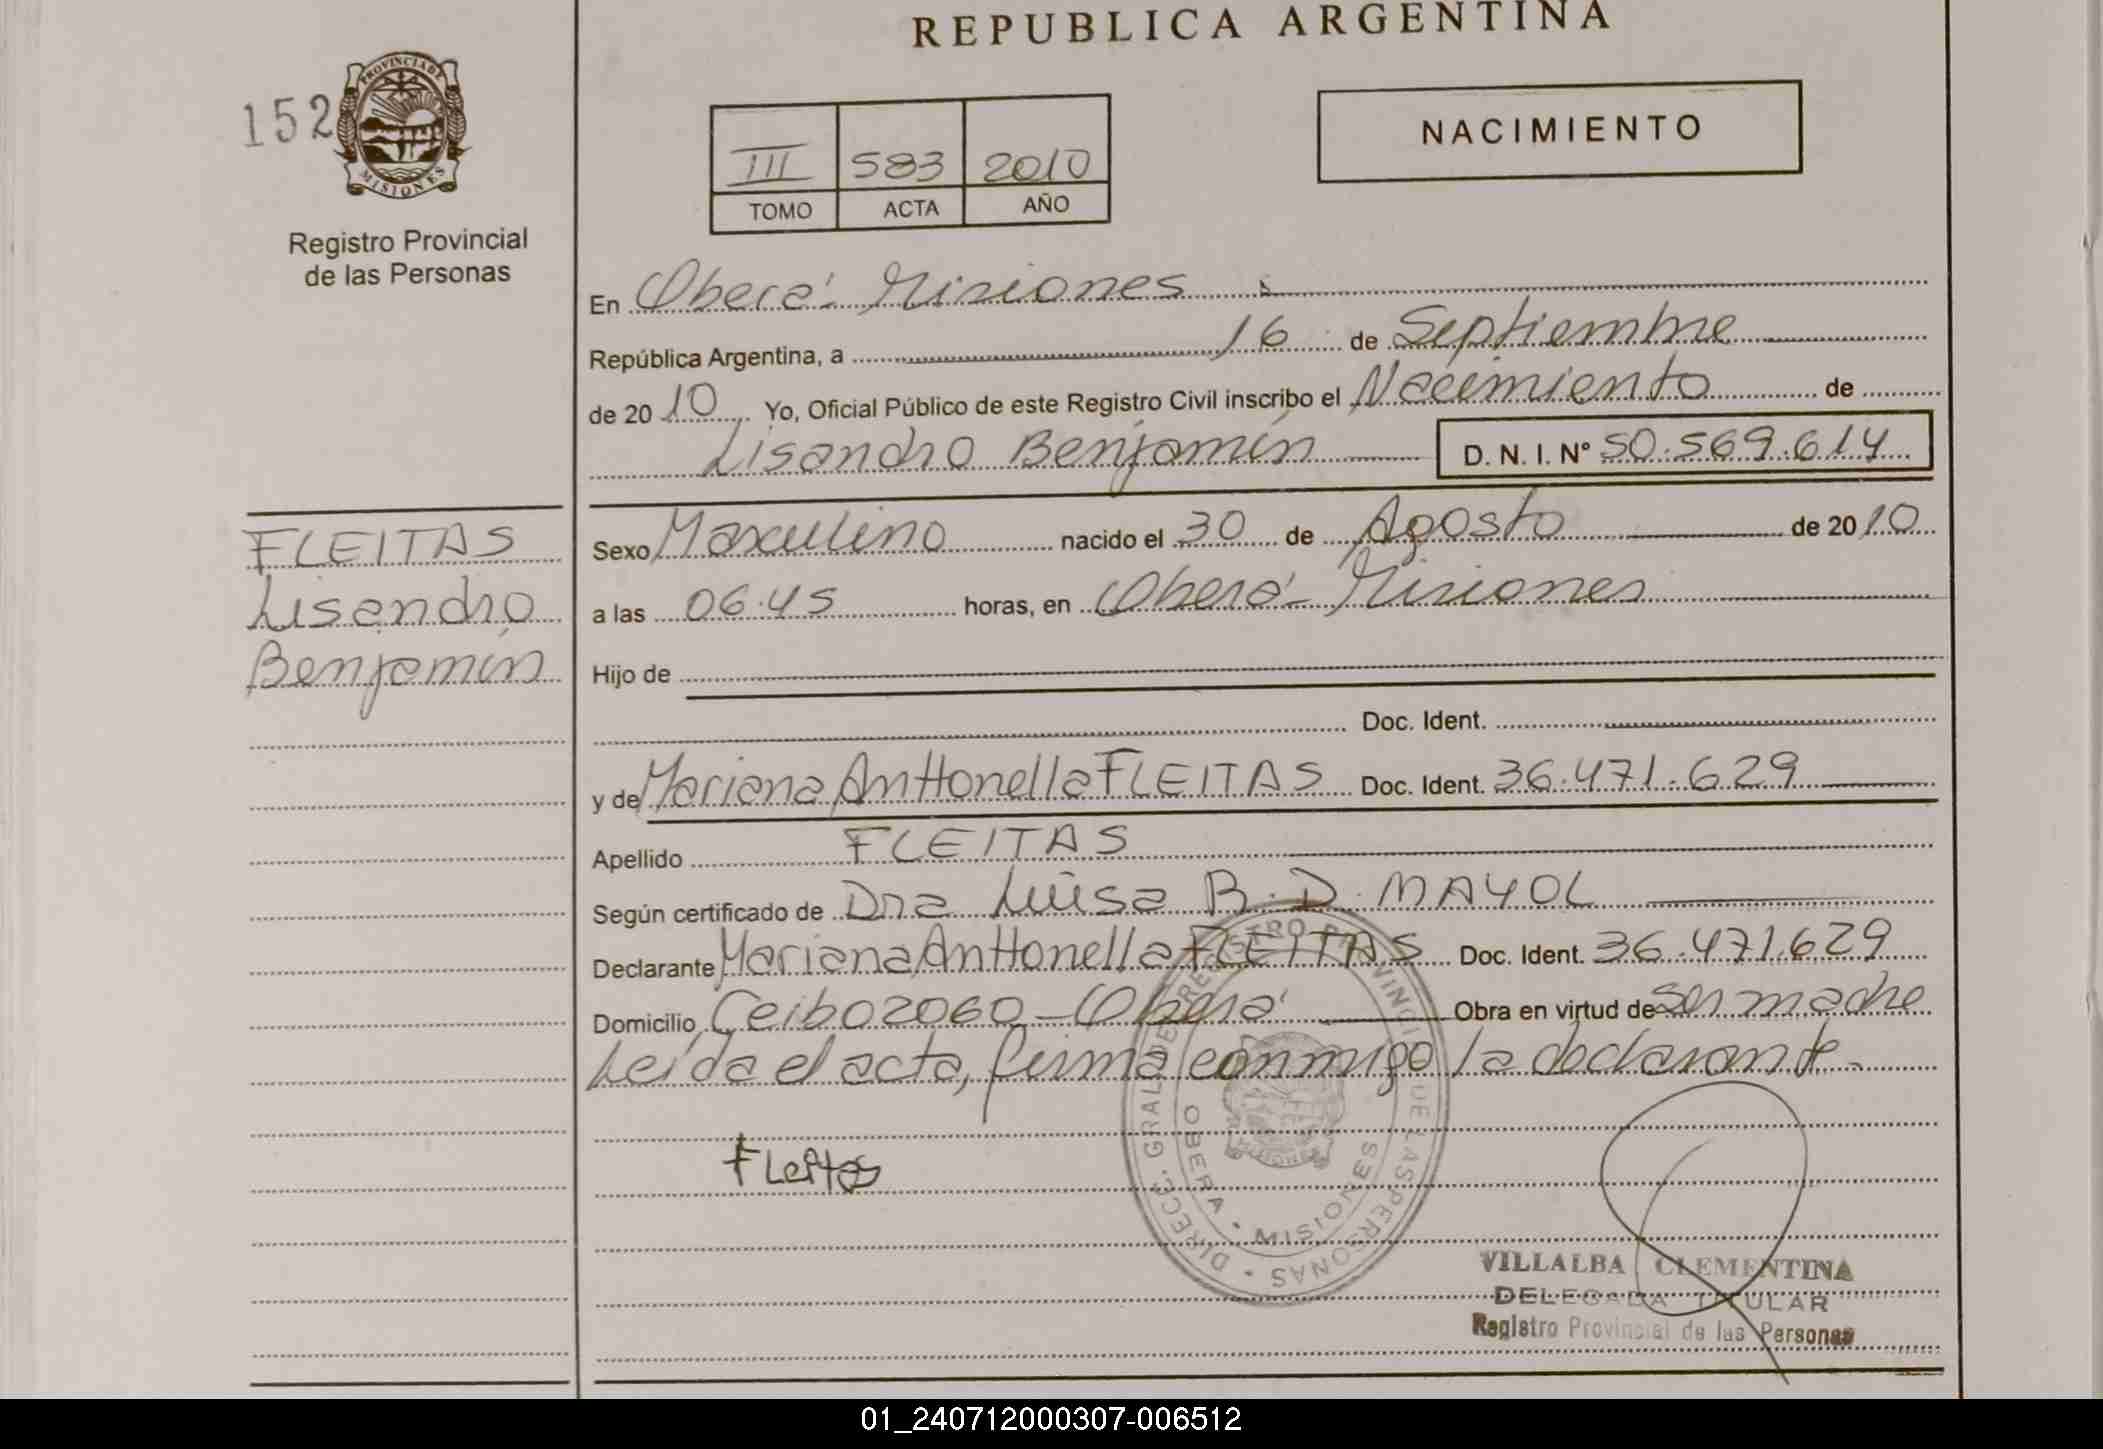 REPUBLICA ARGENTINA
152
PROVINCIA DE
MISIONES
Registro Provincial
de las Personas
III 583 2010
TOMO ACTA AÑO
NACIMIENTO
En Oberá - Misiones
República Argentina, a 16 de Septiembre
de 20 10 Yo, Oficial Público de este Registro Civil inscribo el Nacimiento de
Lisandro Benjamín D. N. I. Nº 50.569.614
FLEITAS
Lisandro
Benjamín
Sexo Masculino nacido el 30 de Agosto de 20 10
a las 06:45 horas, en Oberá - Misiones
Hijo de
Doc. Ident.
y de Mariana Anttonella FLEITAS Doc. Ident. 36.471.629
Apellido FLEITAS
Según certificado de Dra Luisa B. D. MAYOL
Declarante Mariana Anttonella FLEITAS Doc. Ident. 36.471.629
Domicilio Ceibo 2060 - Oberá Obra en virtud de ser madre
Leída el acta, firma conmigo la declarante -
Fleitas
DIRECC. GRAL. DE REGISTRO PROVINCIAL DE LAS PERSONAS
OBERA • MISIONES
VILLALBA CLEMENTINA
DELEGADA TITULAR
Registro Provincial de las Personas
01_240712000307-006512